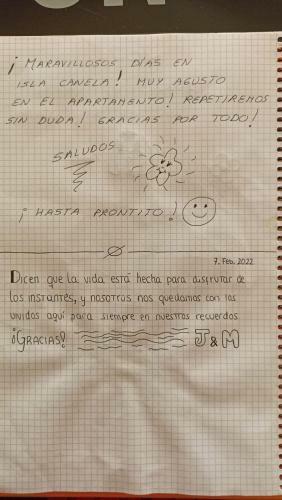 ¡ MARAVILLOSOS DÍAS EN
ISLA CANELA! MUY AGUSTO
EN EL APARTAMENTO! REPETIREMOS
SIN DUDA! GRACIAS POR TODO!
SALUDOS
¡ HASTA PRONTITO!
7. Feb. 2022
Dicen que la vida está hecha para disfrutar de
los instantes, y nosotros nos quedamos con los
vividos aquí para siempre en nuestros recuerdos
¡GRACIAS! J & M